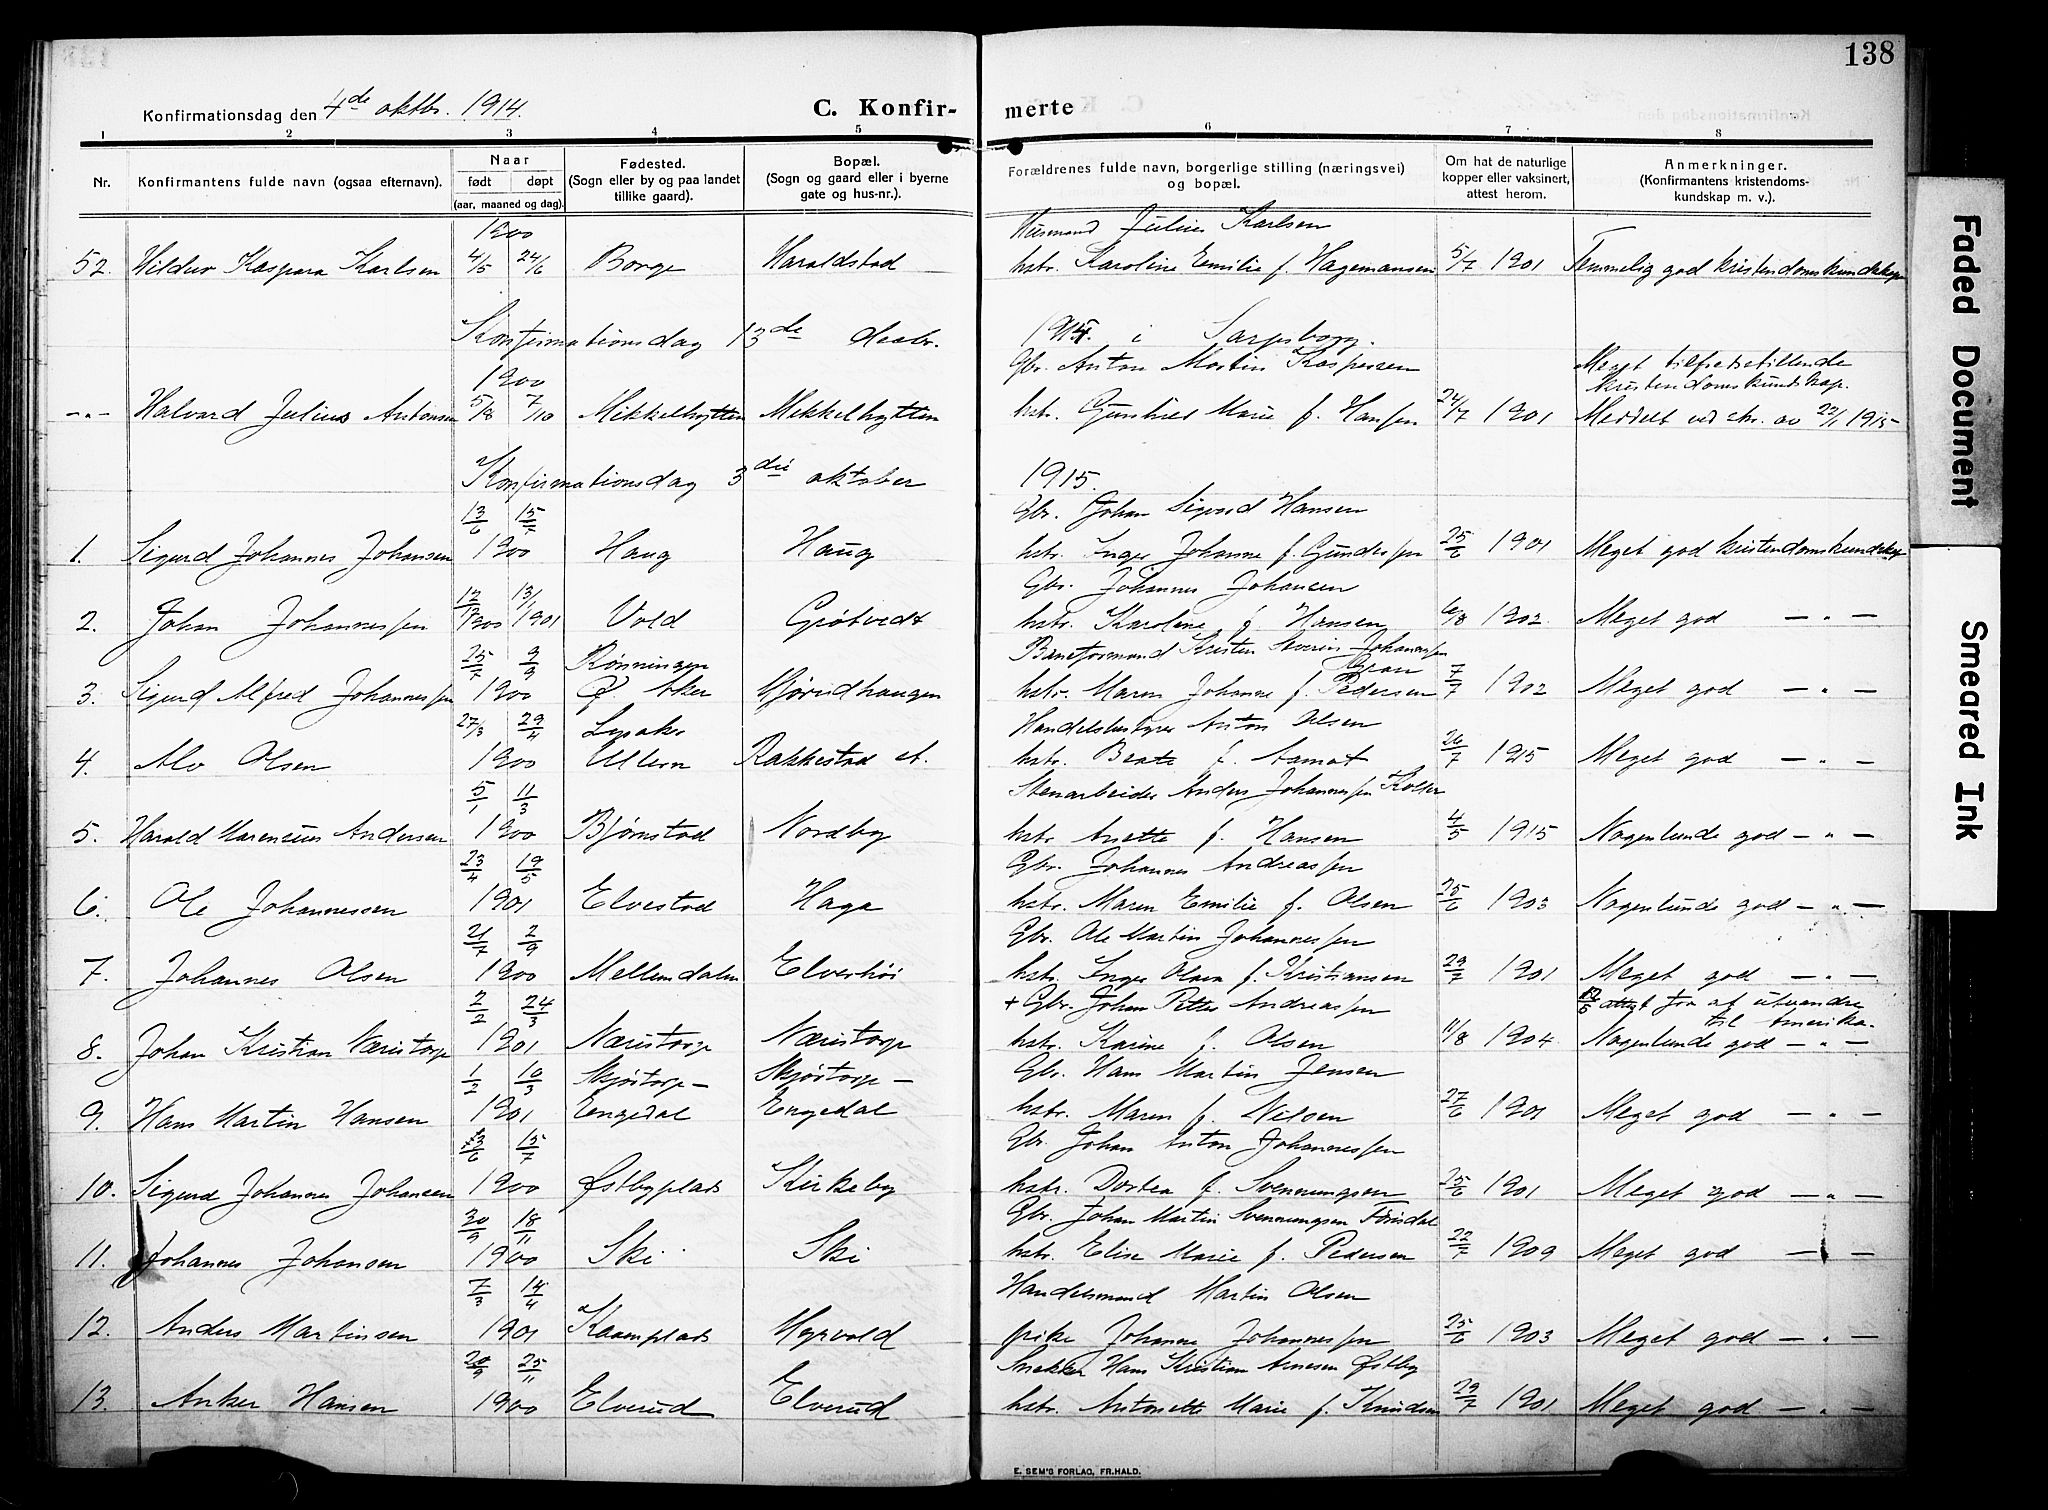 138
Konfirmationsdag den 4de oktbr. 1914.
C. Konfir-
merte
1 2 3 4 5 6 7 8
Nr.
Konfirmantens fulde navn (ogsaa efternavn).
Naar
født døpt
(aar, maaned og dag).
Fødested.
(Sogn eller by og paa landet
tillike gaard).
Bopæl.
(Sogn og gaard eller i byerne
gate og hus-nr.).
Forældrenes fulde navn, borgerlige stilling (næringsvei)
og bopæl.
Om hat de naturlige
kopper eller vaksinert,
attest herom.
Anmerkninger.
(Konfirmantens kristendoms-
kundskap m. v.).
1900 Husmand Julius Karlsen
52. Hildur Kaspara Karlsen 4/5 24/6 Borge Haraldstad hstr. Karoline Emilie f. Hagemansen 5/7 1901 Temmelig god kristendomskundskap
Konfirmationsdag 13de decbr. 1914. i Sarpsborg.
1900 Gbr. Anton Martin Kaspersen Meget tilfredsstillende
kristendomskundskap.
-"- Halvard Julius Antonsen 5/8 7/10 Mikkelhytten Mikkelhytten hstr. Gunhild Marie f. Hansen 24/7 1901 Meddelt ved skr. av 22/1 1915
Konfirmationsdag 3die oktober 1915.
13/6 15/7 Gbr. Johan Sigvard Hansen
1. Sigurd Johannes Johansen 1900 Haug Haug hstr. Inger Johanne f. Gundersen 25/6 1901 Meget god kristendomskundskap
12/12 13/1 Gbr. Johannes Johansen
2. Johan Johannessen 1900 1901 Vold Grøtvedt hstr. Karoline f. Hansen 6/8 1902 Meget god — " —
25/7 9/9 Rønningen Baneformand Kristen Severin Johannessen
Gran
3. Sigurd Alfred Johannessen 1900 Ø. Aker Gjøridhaugen hstr. Maren Johanne f. Pedersen 7/7 1902 Meget god — " —
27/3 29/4 Lysaker Handelsbestyrer Anton Olsen
4. Alv Olsen 1900 Ullern Rakkestad st. hstr. Beate f. Aamot 26/7 1915 Meget god — " —
5/1 11/3 Stenarbeider Anders Johannessen
5. Harald Marensius Andersen 1900 Bjørnstad Nordby hstr. Anette f. Hansen 4/5 1915 Nogenlunde god — " —
23/4 19/5 Gbr. Johannes Andreassen
6. Ole Johannessen 1901 Elvestad Haga hstr. Maren Emilie f. Olsen 25/6 1903 Nogenlunde god — " —
21/7 2/9 Gbr. Ole Martin Johannessen
7. Johannes Olsen 1900 Mellemdalen Elverhøi hstr. Inger Olava f. Kristiansen 29/7 1901 Meget god — " —
2/2 24/3 + Gbr. Johan Petter Andreassen attest for at utvandre
til Amerika.
8. Johan Kristian Næristorp 1901 Næristorp Næristorp hstr. Karine f. Olsen 11/8 1904 Nogenlunde god — " —
1/2 10/3 Skjøstorp — Skjøstorp — Gbr. Hans Martin Jensen
9. Hans Martin Hansen 1901 Engedal Engedal hstr. Maren f. Nilsen 27/6 1901 Meget god — " —
13/6 15/7 Gbr. Johan Anton Johannessen
10. Sigurd Johannes Johansen 1900 Østbyplads Kirkeby hstr. Dortea f. Svenningsen 25/6 1901 Meget god — " —
20/9 18/11 Gbr. Johan Martin Svenningsen
11. Johannes Johansen 1900 Ski Ski hstr. Elise Marie f. Pedersen 22/7 1909 Meget god — " —
7/3 14/4 Handelsmand Martin Olsen
12. Anders Martinsen 1901 Kaaenplads Myrvold pike Johanne Johannessen 25/6 1903 Meget god — " —
20/9 25/11 Snekker Hans Kristian Arnesen Østby
13. Anker Hansen 1900 Elverud Elverud hstr. Antonette Marie f. Knudsen 29/7 1901 Meget god — " —
E. SEM'S FORLAG, FR.HALD.
Faded Document
Smeared Ink